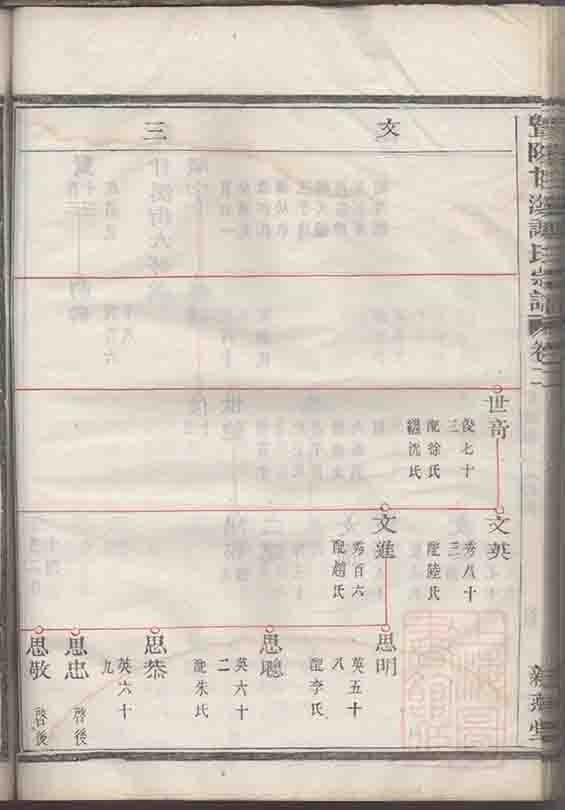 卷二
文
三
世奇
俊七十
三
配徐氏
繼沈氏
文英
秀八十
三
配陸氏
文進
秀百六
配趙氏
思明
英五十
八
配李氏
思聰
英六十
二
配朱氏
思恭
英六十
九
思忠
啓後
思敬
啓後